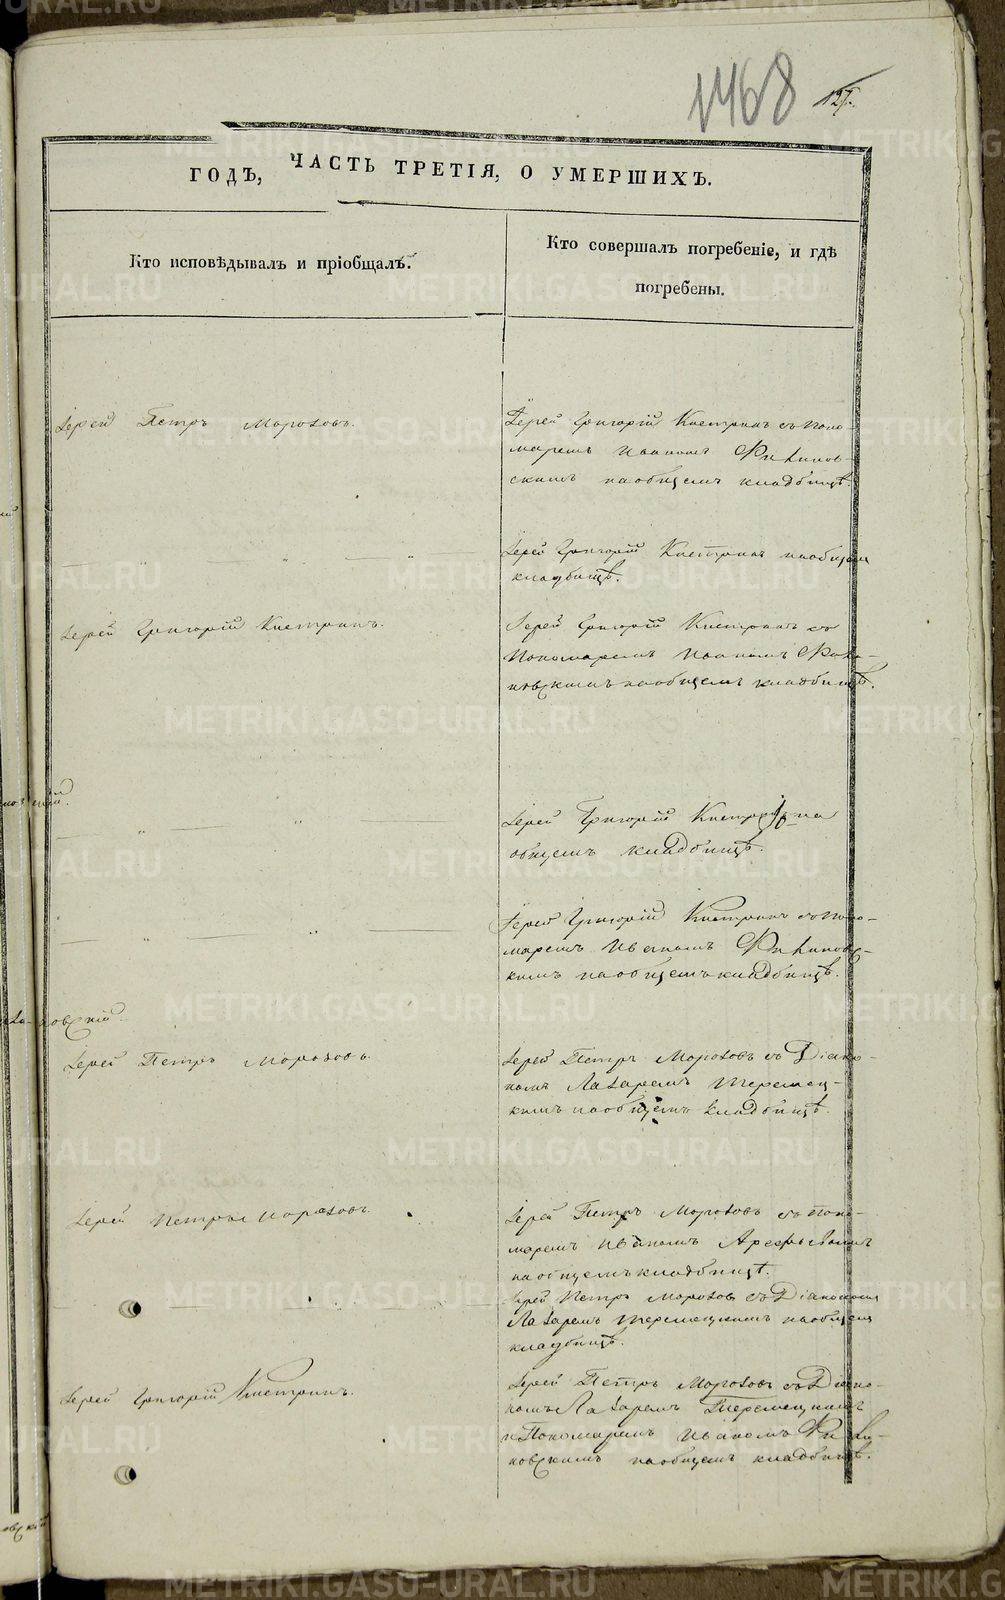 1468
127.
ГОДЪ, ЧАСТЬ ТРЕТІЯ, О УМЕРШИХЪ.
Кто исповѣдывалъ и пріобщалъ.
Кто совершалъ погребеніе, и гдѣ
погребены.
Іерей Петръ Морозовъ.
Іерей Григорій Кистринъ съ Поно
маремъ Иваномъ
скимъ на общемъ кладбищѣ.
Іерей Григорій Кистринъ на общемъ
кладбищѣ.
Іерей Григорій Кистринъ.
Іерей Григорій Кистринъ съ
Пономаремъ Иваномъ
новскимъ на общемъ кладбищѣ.
Іерей Григорій на
общемъ кладбищѣ.
Іерей Григорій Кистринъ съ Поно-
маремъ Иваномъ
кимъ на общемъ кладбищѣ.
Іерей Петръ Морозовъ.
Іерей Петръ Морозовъ съ Діако-
номъ Лазаремъ Теремец-
кимъ на общемъ кладбищѣ.
Іерей Петръ Морозовъ.
Іерей Петръ Морозовъ съ Поно-
маремъ Иваномъ Арефьевымъ
на общемъ кладбищѣ.
Іерей Петръ Морозовъ съ Діакономъ
Лазаремъ Теремецкимъ на общемъ
кладбищѣ.
Іерей Григорій Кистринъ.
Іерей Петръ Морозовъ съ Діако-
номъ Лазаремъ Теремецкимъ
и Пономаремъ Иваномъ
новскимъ на общемъ кладбищѣ.
METRIKI.GASO-URAL.RU